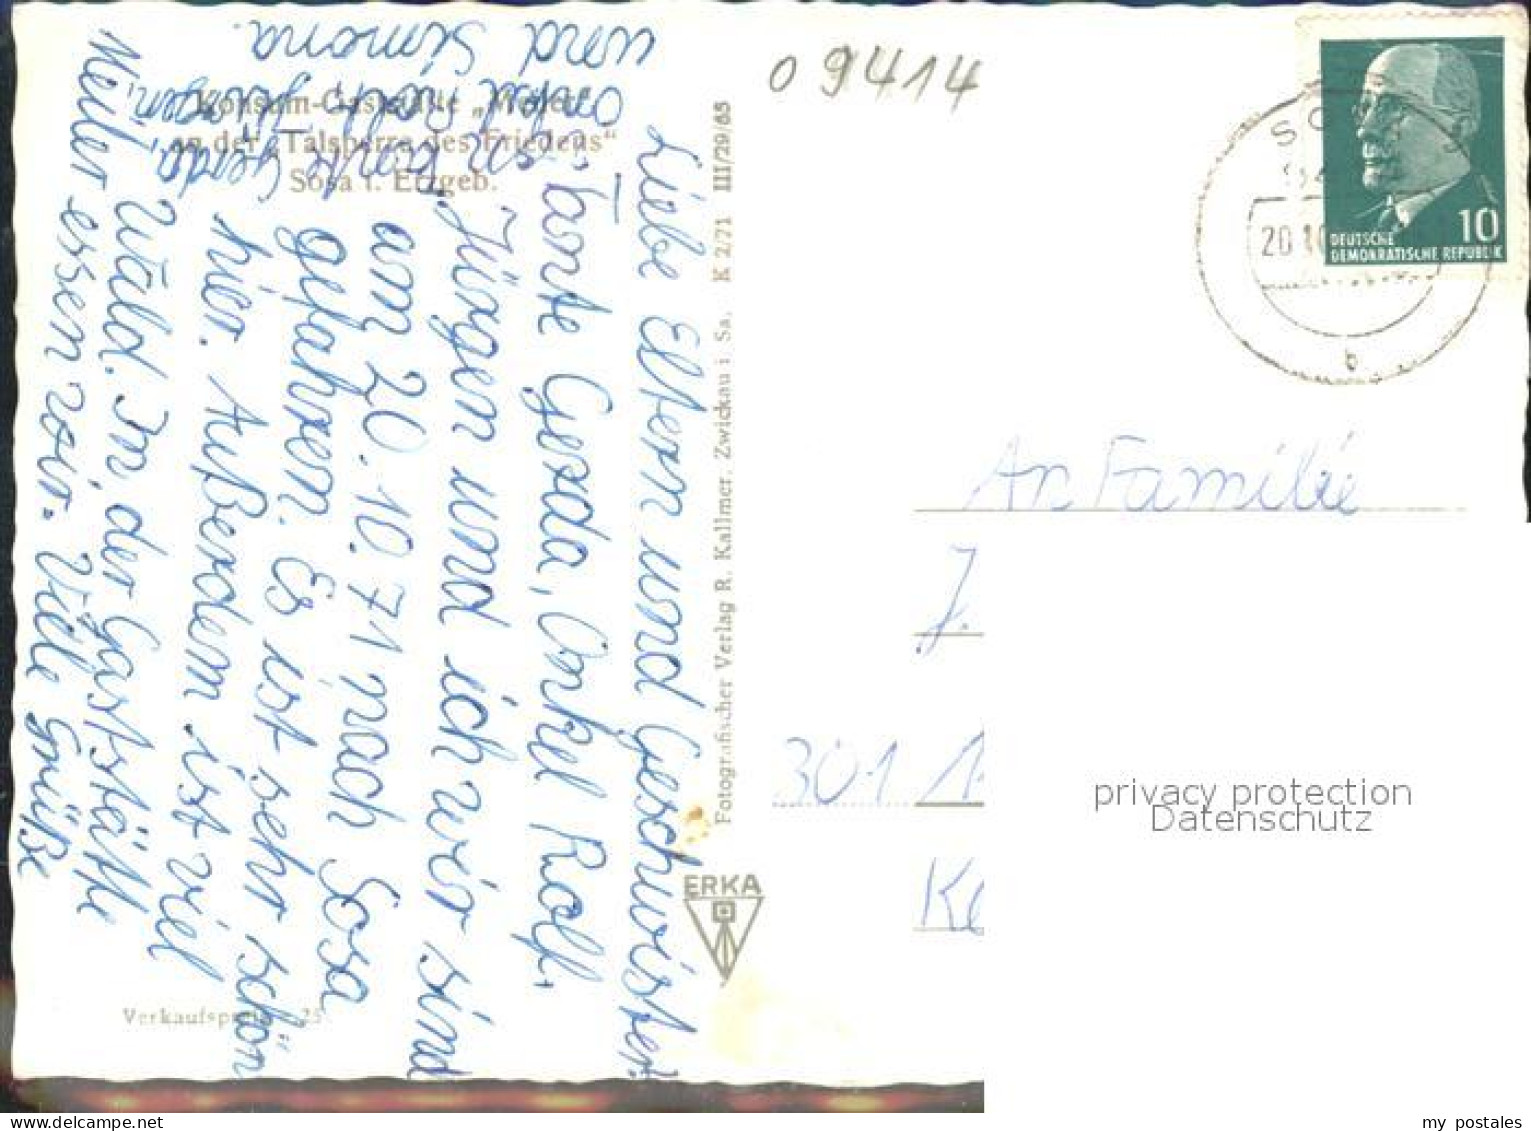 Konsum-Gaststätte „Meiler"
an der „Talsperre des Friedens"
Sosa i. Erzgeb.
Liebe Eltern und Geschwister
Tante Gerda, Onkel Rolf,
Jürgen und ich wir sind
am 20.10.71 nach Sosa
gefahren. Es ist sehr schön
hier. Außerdem ist viel
Wald. In der Gaststätte
Meiler essen wir. Viele Grüße
Tante Gerda,
Onkel Rolf Jürgen
und Simona.
Verkaufspreis 25
Fotografischer Verlag R. Kallmer, Zwickau i. Sa. K 2/71 III/29/65
ERKA
09414
20.10
b
10
DEUTSCHE
DEMOKRATISCHE REPUBLIK
An Familie
J.
301
Ke
privacy protection
Datenschutz
my postales